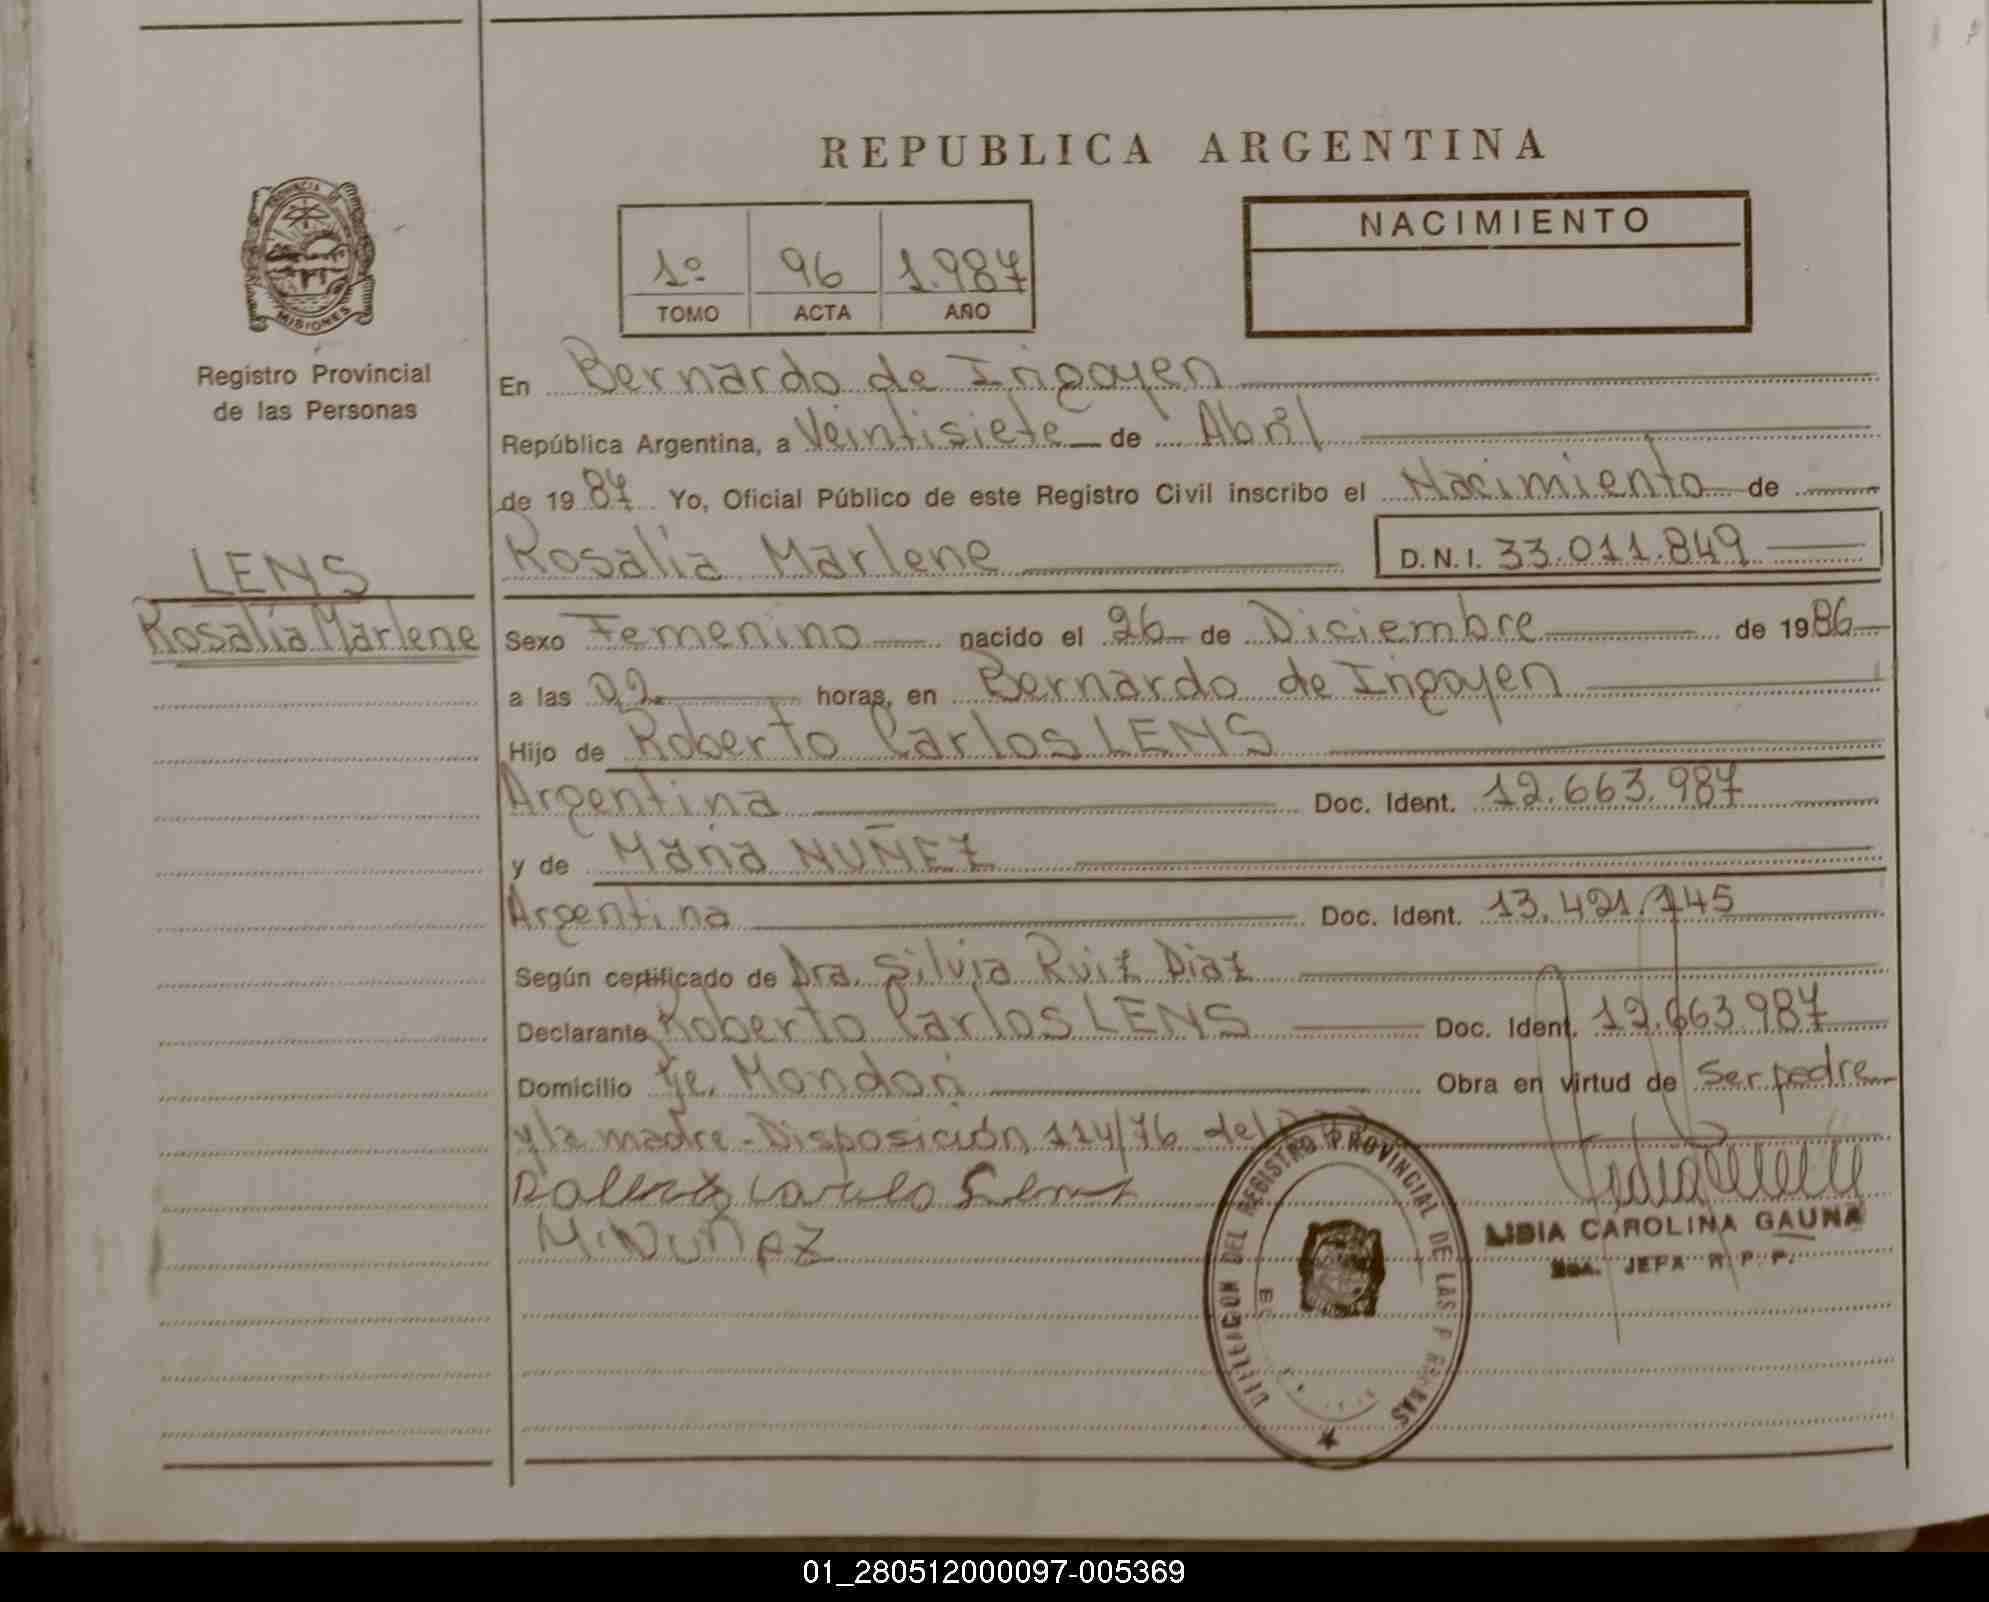 REPUBLICA ARGENTINA
1º 96 1.987
TOMO ACTA AÑO
NACIMIENTO
PROVINCIA DE
MISIONES
Registro Provincial
de las Personas
LENS
Rosalía Marlene
En Bernardo de Irigoyen
República Argentina, a Veintisiete de Abril
de 19 87 Yo, Oficial Público de este Registro Civil inscribo el Nacimiento de
Rosalía Marlene D.N.I. 33.011.849
Sexo Femenino nacido el 26 de Diciembre de 1986
a las 02 horas, en Bernardo de Irigoyen
Hijo de Roberto Carlos LENS
Argentina Doc. Ident. 12.663.987
y de María NUÑEZ
Argentina Doc. Ident. 13.421.745
Según certificado de Dra. Silvia Ruiz Diaz
Declarante Roberto Carlos LENS Doc. Ident. 12.663.987
Domicilio Pje. Mondorí Obra en virtud de Ser padre
y la madre - Disposición 114/76 del
Roberto Carlos Lens
M. NUÑEZ
DIRECCION DEL REGISTRO PROVINCIAL DE LAS PERSONAS
LIBIA CAROLINA GAUNA
JEFA R. P. P.
01_280512000097-005369